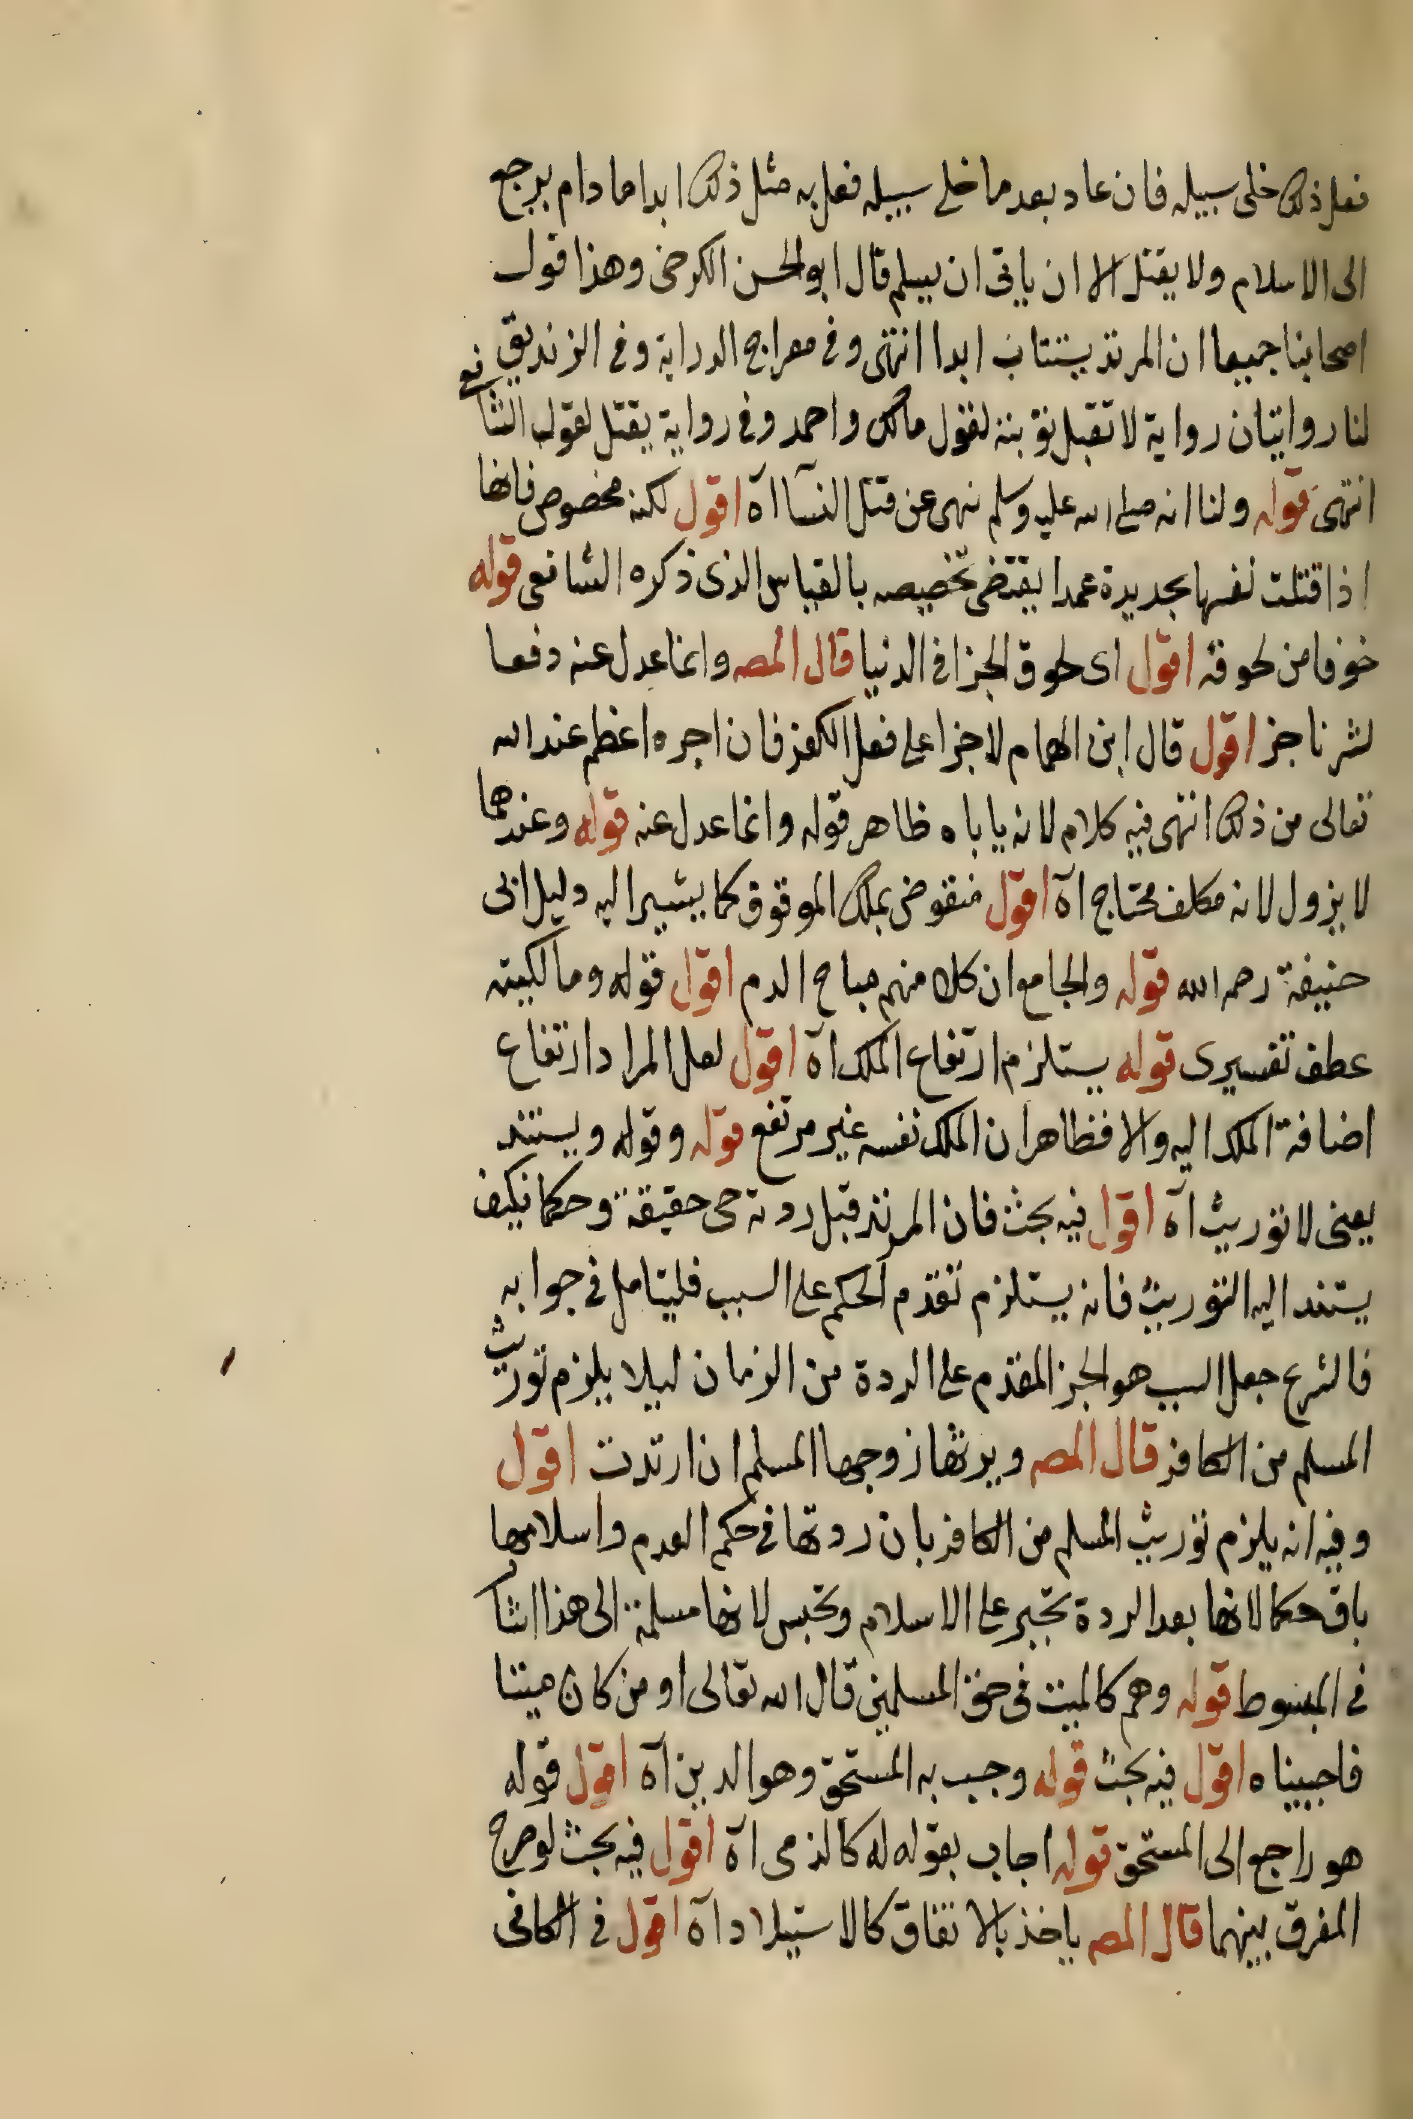 فعل ذلك خلى سبيله فان عاد بعد ما خلى سبيله فعل به مثل ذلك ابدا ما دام يرجع
الى الاسلام ولا يقتل الا ان يابى ان يسلم قال ابو الحسن الكرخى وهذا قول
اصحابنا جميعا ان المرتد يستتاب ابدا انتهى وفى معراج الدراية وفى الزنديق
لنا روايتان رواية لا تقبل توبته لقول مالك واحمد وفى رواية يقتل لقول الشافعى
انتهى قوله ولنا انه صلى الله عليه وسلم نهى عن قتل النسآ اه اقول لكنه مخصوص فانها
اذا قتلت نفسها بحديدة عمدا يقتضى تخصيصه بالقياس الذى ذكره الشافعى قوله
خوفا من لحوقه اقول اى لحوق الجزا فى الدنيا قال المصه وانما عدل عنه دفعا
لشر ناجز اقول قال ابن الهمام لا جزا على فعل الكفر فان اجره اعظم عند الله
تعالى من ذلك انتهى فيه كلام لانه ياباه ظاهر قوله وانما عدل عنه قوله وعندهما
لا يزول لانه مكلف محتاج اه اقول منقوض بملك الموقوف كما يشير اليه دليل ابى
حنيفة رحمه الله قوله والجامع ان كلا منهم مباح الدم اقول قوله ومالكيته
عطف تفسيرى قوله يستلزم ارتفاع الملك اه اقول لعل المراد ارتفاع
اضافة الملك اليه والا فظاهر ان الملك نفسه غير مرتفع قوله وقوله ويستند
يعنى لا توريث اه اقول فيه بحث فان المرتد قبل ردته حى حقيقة وحكما فكيف
يستند اليه التوريث فانه يستلزم تقدم الحكم على السبب فليتامل فى جوابه
فالشرع جعل السبب هو الجز المقدم على الردة من الزمان ليلا يلزم توريث
المسلم من الكافر قال المصه ويرثها زوجها المسلم ان ارتدت اقول
وفيه انه يلزم توريث المسلم من الكافر بان ردتها فى حكم العدم واسلامها
باق حكما لانها بعد الردة تجبر على الاسلام وتحبس لانها مسلمة الى هذا اشار
فى المبسوط قوله وهم كالميت فى حق المسلمين قال الله تعالى او من كان ميتا
فاحييناه اقول فيه بحث قوله وجب به المستحق وهو الدين اه اقول قوله
هو راجع الى المستحق قوله اجاب بقوله له كالذمى اه اقول فيه بحث لوضوح
المفرق بينهما قال المصه ياخذ بالاتفاق كالاستيلاد اه اقول فى الكافى